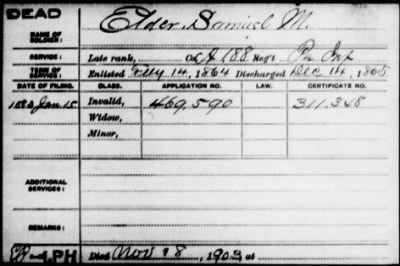 DEAD
NAME OF SOLDIER: Elder, Samuel M.
SERVICE: Late rank, Co. A, 188 Reg't Pa Inf
TERM OF SERVICE: Enlisted Feby 14, 1864 Discharged Dec 14, 1865
DATE OF FILING. CLASS. APPLICATION NO. LAW. CERTIFICATE NO.
1883 Jan 15 Invalid, 469,590 311,348
Widow,
Minor,
ADDITIONAL SERVICES:
REMARKS:
PH Died Nov 18, 1903 at